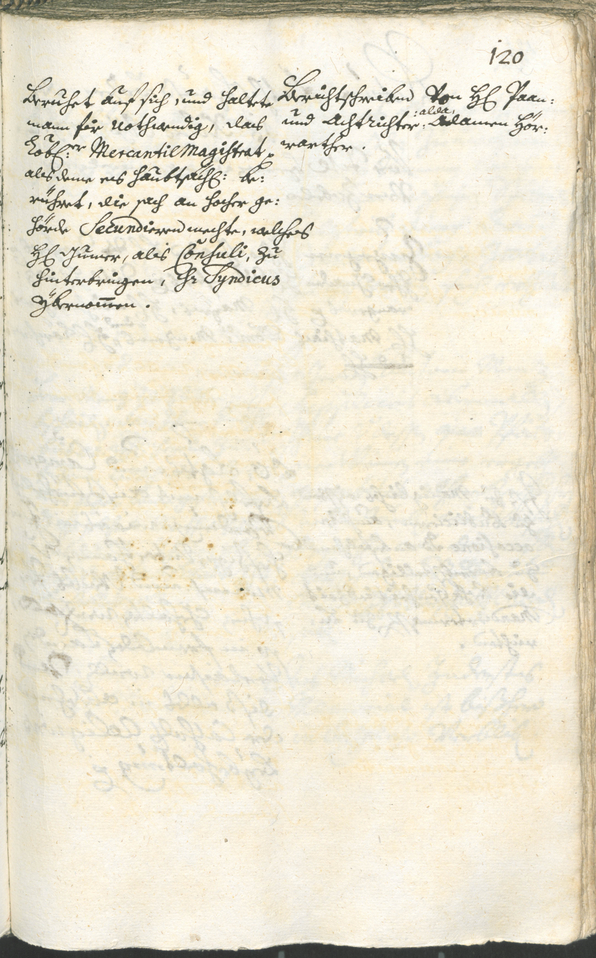 120
Beruhet auf sich, und haltete
man für nothwendig, das
Löbl:er Mercantil Magistrat,
als deme eis haubtsächl: be:
rühret, die sach an hocher ge:
hörde Secundieren mechte, welches
Hl Gumer, als Consuli, zu
hinterbringen, Hr Syndicus
Ybernommen.
Berichtschreiben von Hl Paan:
und Achtrichter :alda: Adamen Hör:
warther.